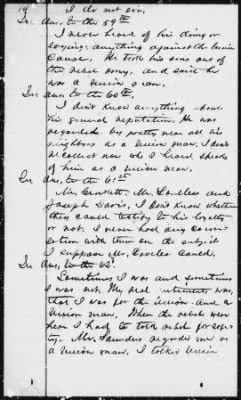 14 I do not own.
In Ans. to the 59th
I never heard of his doing or
saying anything against the Union
Cause. He took his sons out of
the rebel army, and said he
was a Union man.
In Ans. to the 60th
I don't know anything about
his general reputation. He was
regarded by pretty near all his
neighbors as a Union man. I don't
recollect now who I heard speak
of him as a Union man.
In Ans. to the 61st
Mr. Crockett, Mr. Loveless and
Joseph Davis, I don't know whether
they could testify to his loyalty
or not. I never had any conver-
sation with them on the subject
I suppose Mr. Loveless could.
In Ans. to the 62
Sometimes I was and sometimes
I was not. My real sentiments was,
that I was for the Union and a
Union man. When the rebels were
here I had to talk rebel for safe-
ty. Mr. Saunders regarded me as
a Union man. I talked Union